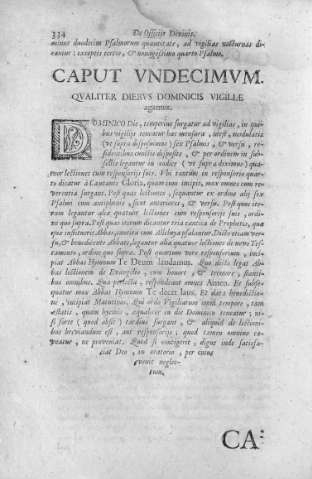 334 De Officiis Divinis.
minus duodecim Psalmorum quantitate, ad vigilias nocturnas di-
cantur: exceptis tertio, & nonagesimo quarto Psalmo.
CAPUT VNDECIMVM.
QVALITER DIEBVS DOMINICIS VIGILIÆ
agantur.
DOMINICO Die, temperius surgatur ad vigilias, in qui-
bus vigilijs teneatur hæc mensura, idest, modulatis
(ut supra disposuimus) sex Psalmis, & versu, re-
sidentibus cunctis disposite, & per ordinem in sub-
sellijs legantur in codice (ut supra diximus) qua-
tuor lectiones cum responsorijs suis. Vbi tantùm in responsorio quar-
to dicatur à Cantante Gloria, quam cum incipit, mox omnes cum re-
verentia surgant. Post quas lectiones, sequantur ex ordine alij sex
Psalmi cum antiphonis, sicut anteriores, & versu. Post quos ite-
rum legantur aliæ quatuor lectiones cum responsorijs suis, ordi-
ne quo supra. Post quas iterum dicantur tria cantica de Prophetis, quæ
quæ instituerit Abbas, cantica cum Alleluya psallantur. Dicto etiam ver-
su, & benedicente Abbate, legantur aliæ quatuor lectiones de novo Tes-
tamento, ordine quo supra. Post quartum verò responsorium, inci-
piat Abbas Hymnum Te Deum laudamus. Quo dicto legat Ab-
bas lectionem de Evangelio, cum honore, & tremore, stanti-
bus omnibus. Qua perlecta, respondeant omnes Amen. Et subse-
quatur mox Abbas Hymnum Te decet laus. Et data benedictio-
ne, incipiat Matutinos. Qui ordo Vigiliarum omni tempore, tam
æstatis, quàm hyemis, æqualiter in die Dominico teneatur; ni-
si fortè (quod absit) tardius surgant, & aliquid de lectioni-
bus breviandum est, aut responsorijs; quod tamen omnino ca-
veatur, ne proveniat. Quod si contigerit, dignè inde satisfa-
ciat Deo, in oratorio, per cuius
evenit neglec-
tum.
CA-